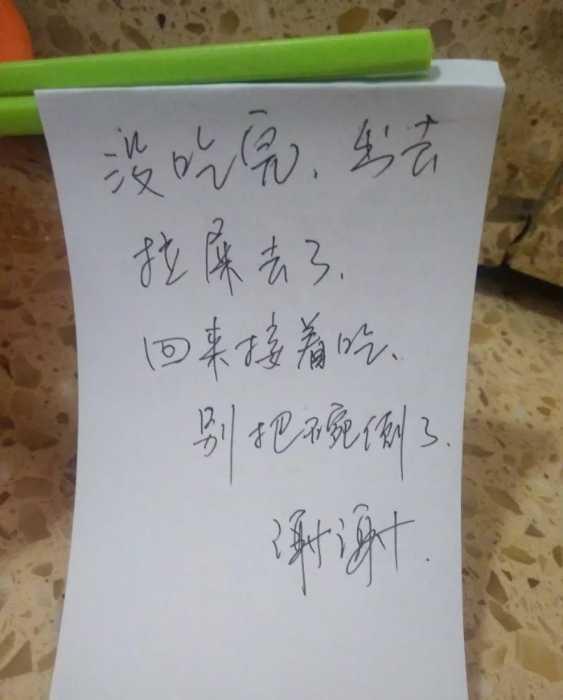 没吃完、出去
拉屎去了.
回来接着吃、
别把碗倒了.
谢谢.